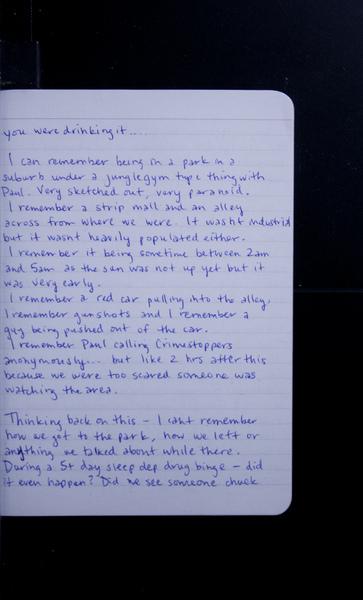 you were drinking it....
I can remember being in a park in a
suburb under a junglegym type thing with
Paul. Very sketched out, very paranoid.
I remember a strip mall and an alley
across from where we were. It wasn't industrial
but it wasn't heavily populated either.
I remember it being sometime between 2am
and 5am as the sun was not up yet but it
was very early.
I remember a red car pulling into the alley,
I remember gunshots and I remember a
guy being pushed out of the car.
I remember Paul calling Crimestoppers
anonymously... but like 2 hrs after this
because we were too scared someone was
watching the area.
Thinking back on this - I can't remember
how we got to the park, how we left or
anything we talked about while there.
During a 5+ day sleep dep drug binge - did
it even happen? Did we see someone chuck